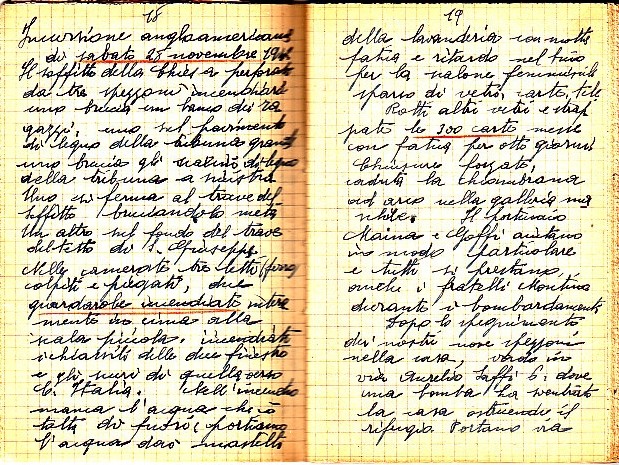 18
Incursione angloamericana
di sabato 25 novembre 19
Il soffitto della Chiesa perforato
da tre spezzoni incendiari
uno brucia un banco di ra
gazzi, uno sul pavimento
di legno della tribuna grande
uno brucia gli scalini di legno
della tribuna a sinistra
Uno si ferma al trave del
soffitto bruciandolo metà
Un altro sul fondo del trave
del tetto di S. Giuseppe.
Nelle camerate tre letti (ferro)
colpiti e piegati, due
guardarobe incendiate intera
mente in cima alla
scala piccola. incendiati
i chiassili delle due finestre
e gli muri di quella verso
C. Italia. Nell'incendio
manca l'acqua che è
tutta di fuori; portiamo
l'acqua dai mastelli
19
della lavanderia con molta
fatica e ritardo nel buio
per la salone femminile
sparso di vetri, carte, tele
Rotti altri vetri e strap
pate le 300 carte messe
con fatica per otto giorni
Chiusura forzata,
caduta la
ad arco nella galleria ma
schile. Il portinaio
Maina e Goffi aiutano
in modo particolare
e tutti si prestano,
anche i fratelli Montina
durante i bombardamenti
Dopo lo spegnimento
dei nostri nove spezzoni
nella casa, vado in
via Aurelio Saffi 6: dove
una bomba ha sventrato
la casa ostruendo il
rifugio Portano via